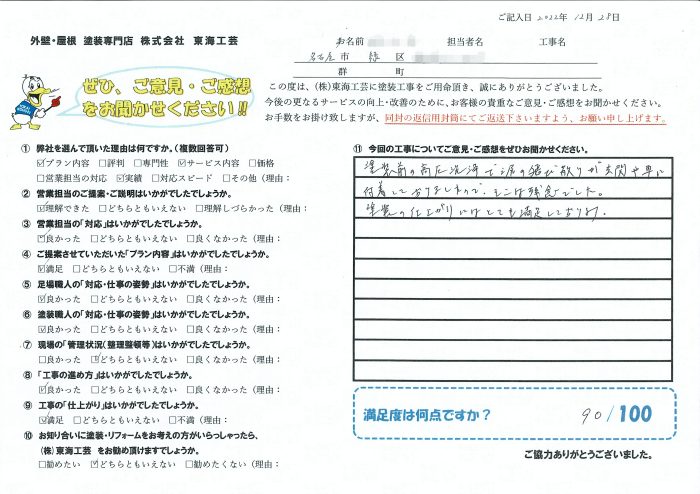 ご記入日 2022年 12月 28日
外壁・屋根 塗装専門店 株式会社 東海工芸
お名前 担当者名 工事名
名古屋市 緑 区
郡 町
ぜひ、ご意見・ご感想
をお聞かせください!!
この度は、(株)東海工芸に塗装工事をご用命頂き、誠にありがとうございました。
今後の更なるサービスの向上・改善のために、お客様の貴重なご意見・ご感想をお聞かせください。
お手数をお掛け致しますが、同封の返信用封筒にてご返送下さいますよう、お願い申し上げます。
① 弊社を選んで頂いた理由は何ですか。(複数回答可)
☑プラン内容 □評判 □専門性 ☑サービス内容 □価格
□営業担当の対応 ☑実績 □対応スピード □その他(理由:
② 営業担当のご提案・ご説明はいかがでしたでしょうか。
☑理解できた □どちらともいえない □理解しづらかった(理由:
③ 営業担当の「対応」はいかがでしたでしょうか。
☑良かった □どちらともいえない □良くなかった(理由:
④ ご提案させていただいた「プラン内容」はいかがでしたでしょうか。
☑満足 □どちらともいえない □不満(理由:
⑤ 足場職人の「対応・仕事の姿勢」はいかがでしたでしょうか。
☑良かった □どちらともいえない □良くなかった(理由:
⑥ 塗装職人の「対応・仕事の姿勢」はいかがでしたでしょうか。
☑良かった □どちらともいえない □良くなかった(理由:
⑦ 現場の「管理状況(整理整頓等)」はいかがでしたでしょうか。
□良かった ☑どちらともいえない □良くなかった(理由:
⑧ 「工事の進め方」はいかがでしたでしょうか。
☑良かった □どちらともいえない □良くなかった(理由:
⑨ 工事の「仕上がり」はいかがでしたでしょうか。
☑満足 □どちらともいえない □不満(理由:
⑩ お知り合いに塗装・リフォームをお考えの方がいらっしゃったら、
(株)東海工芸 をお勧め頂けますでしょうか。
□勧めたい ☑どちらともいえない □勧めたくない(理由:
⑪ 今回の工事についてご意見・ご感想をぜひお聞かせください。
塗装前の高圧洗浄で泥の飛び散りが玄関や車に
付着しておりましたので、そこは残念でした。
塗装の仕上がりにはとても満足しております。
満足度は何点ですか? 90/100
ご協力ありがとうございました。